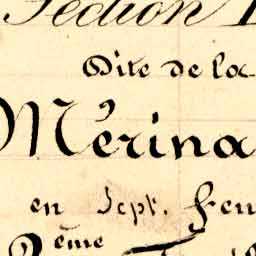 Section
Dite de la
Mérina
en Sept. Feu
2ème